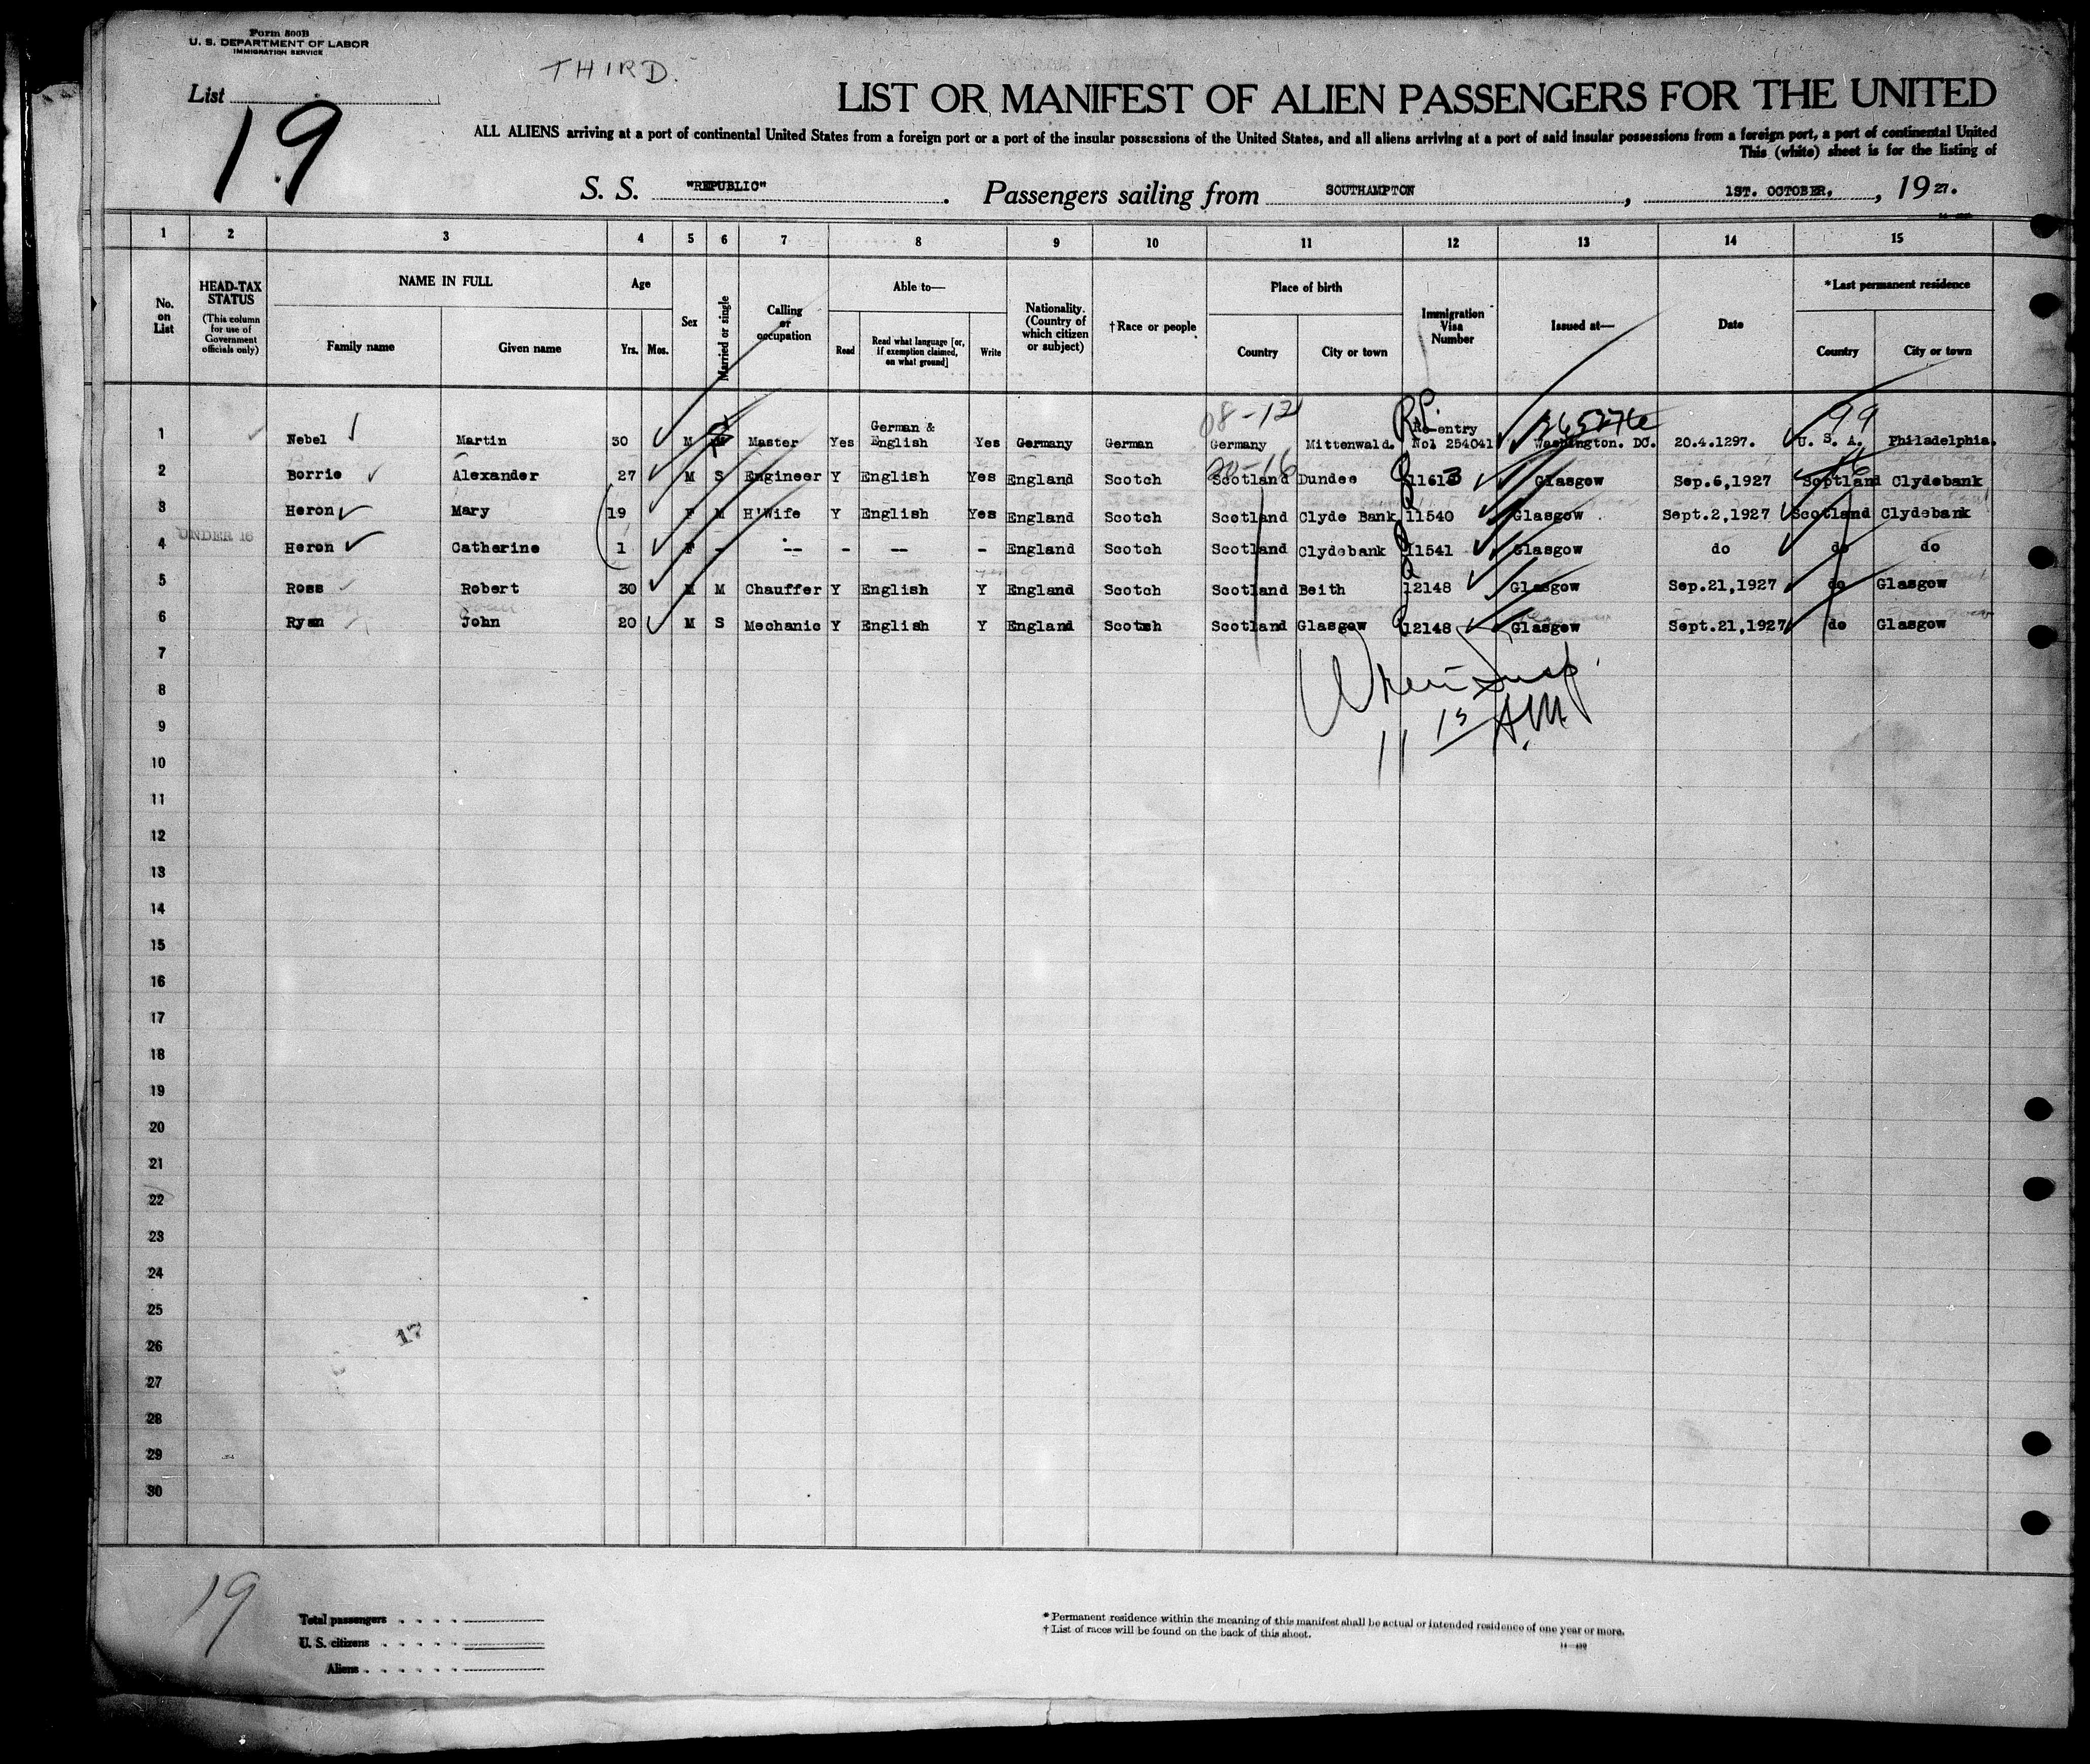 Form 500B
U. S. DEPARTMENT OF LABOR
IMMIGRATION SERVICE
THIRD.
List
19
LIST OR MANIFEST OF ALIEN PASSENGERS FOR THE UNITED
ALL ALIENS arriving at a port of continental United States from a foreign port or a port of the insular possessions of the United States, and all aliens arriving at a port of said insular possessions from a foreign port, a port of continental United
This (white) sheet is for the listing of
S. S. "REPUBLIC" . Passengers sailing from SOUTHAMPTON , 1ST. OCTOBER, , 19 27.
1 2 3 4 5 6 7 8 9 10 11 12 13 14 15
No. on List
HEAD-TAX STATUS (This column for use of Government officials only)
NAME IN FULL
Family name Given name
Age
Yrs. Mos.
Sex
Married or single
Calling or occupation
Able to—
Read Read what language [or, if exemption claimed, on what ground] Write
Nationality. (Country of which citizen or subject)
†Race or people
Place of birth
Country City or town
Immigration Visa Number
Issued at—
Date
*Last permanent residence
Country City or town
08-12 99
1 Nebel Martin 30 M M Master Yes German & English Yes Germany German Germany Mittenwald. Re-entry No1 254041 Washington. DC. 20.4.1297. U. S. A. Philadelphia.
20-16 16
2 Borrie Alexander 27 M S Engineer Y English Yes England Scotch Scotland Dundee 11613 Glasgow Sep.6,1927 Scotland Clydebank
3 Heron Mary 19 F M H'Wife Y English Yes England Scotch Scotland Clyde Bank 11540 Glasgow Sept.2,1927 Scotland Clydebank
UNDER 16
4 Heron Catherine 1 F - -- - -- - England Scotch Scotland Clydebank 11541 Glasgow do do do
5 Ross Robert 30 M M Chauffer Y English Y England Scotch Scotland Beith 12148 Glasgow Sep.21,1927 do Glasgow
6 Ryan John 20 M S Mechanic Y English Y England Scotch Scotland Glasgow 12148 Glasgow Sept.21,1927 do Glasgow
7
8
9
11 15 A.M.
10
11
12
13
14
15
16
17
18
19
20
21
22
23
24
25
17
26
27
28
29
30
19
Total passengers
U. S. citizens
Aliens
* Permanent residence within the meaning of this manifest shall be actual or intended residence of one year or more.
† List of races will be found on the back of this sheet.